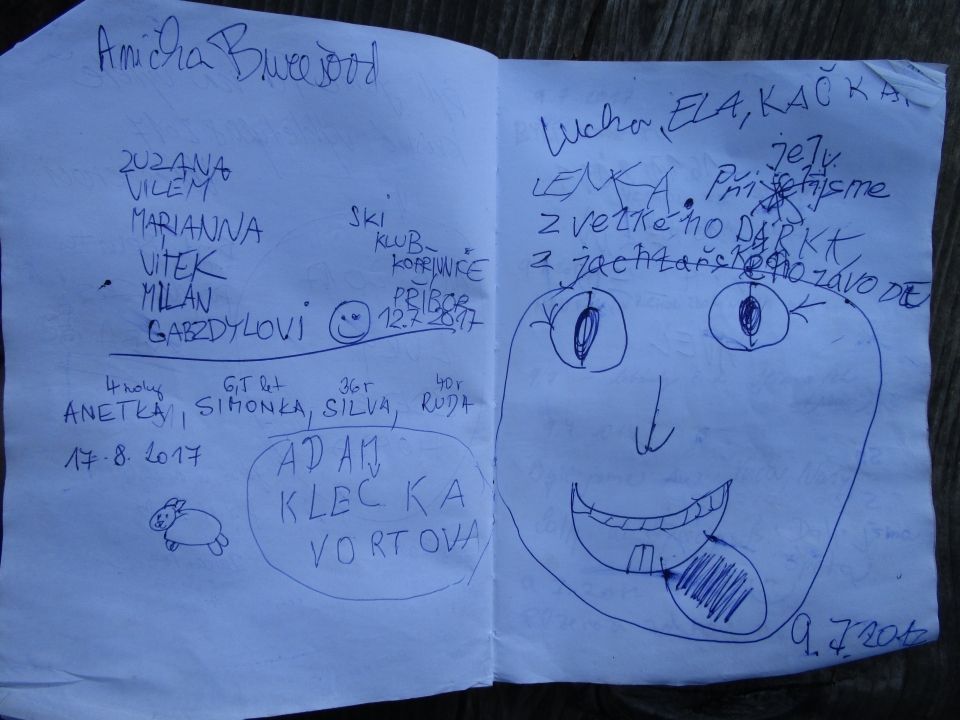 Anička
ZUZANA
VILÉM
MARIANNA
VÍTEK
MILAN
GABZDYLOVI
SKI
KLUB
KOPŘIVNICE
PŘÍBOR
12.7 2017
4 roky 6,5 let 36 r 40 r
ANETKA, SIMONKA, SILVA, RUDA
17.8.2017
ADAM
KLEČKA
VORTOVA
ELA, KAČKA,
LENKA. Přijely jsme
z velkého DÁŘKA
z jachtařského závodE
9.7.2017